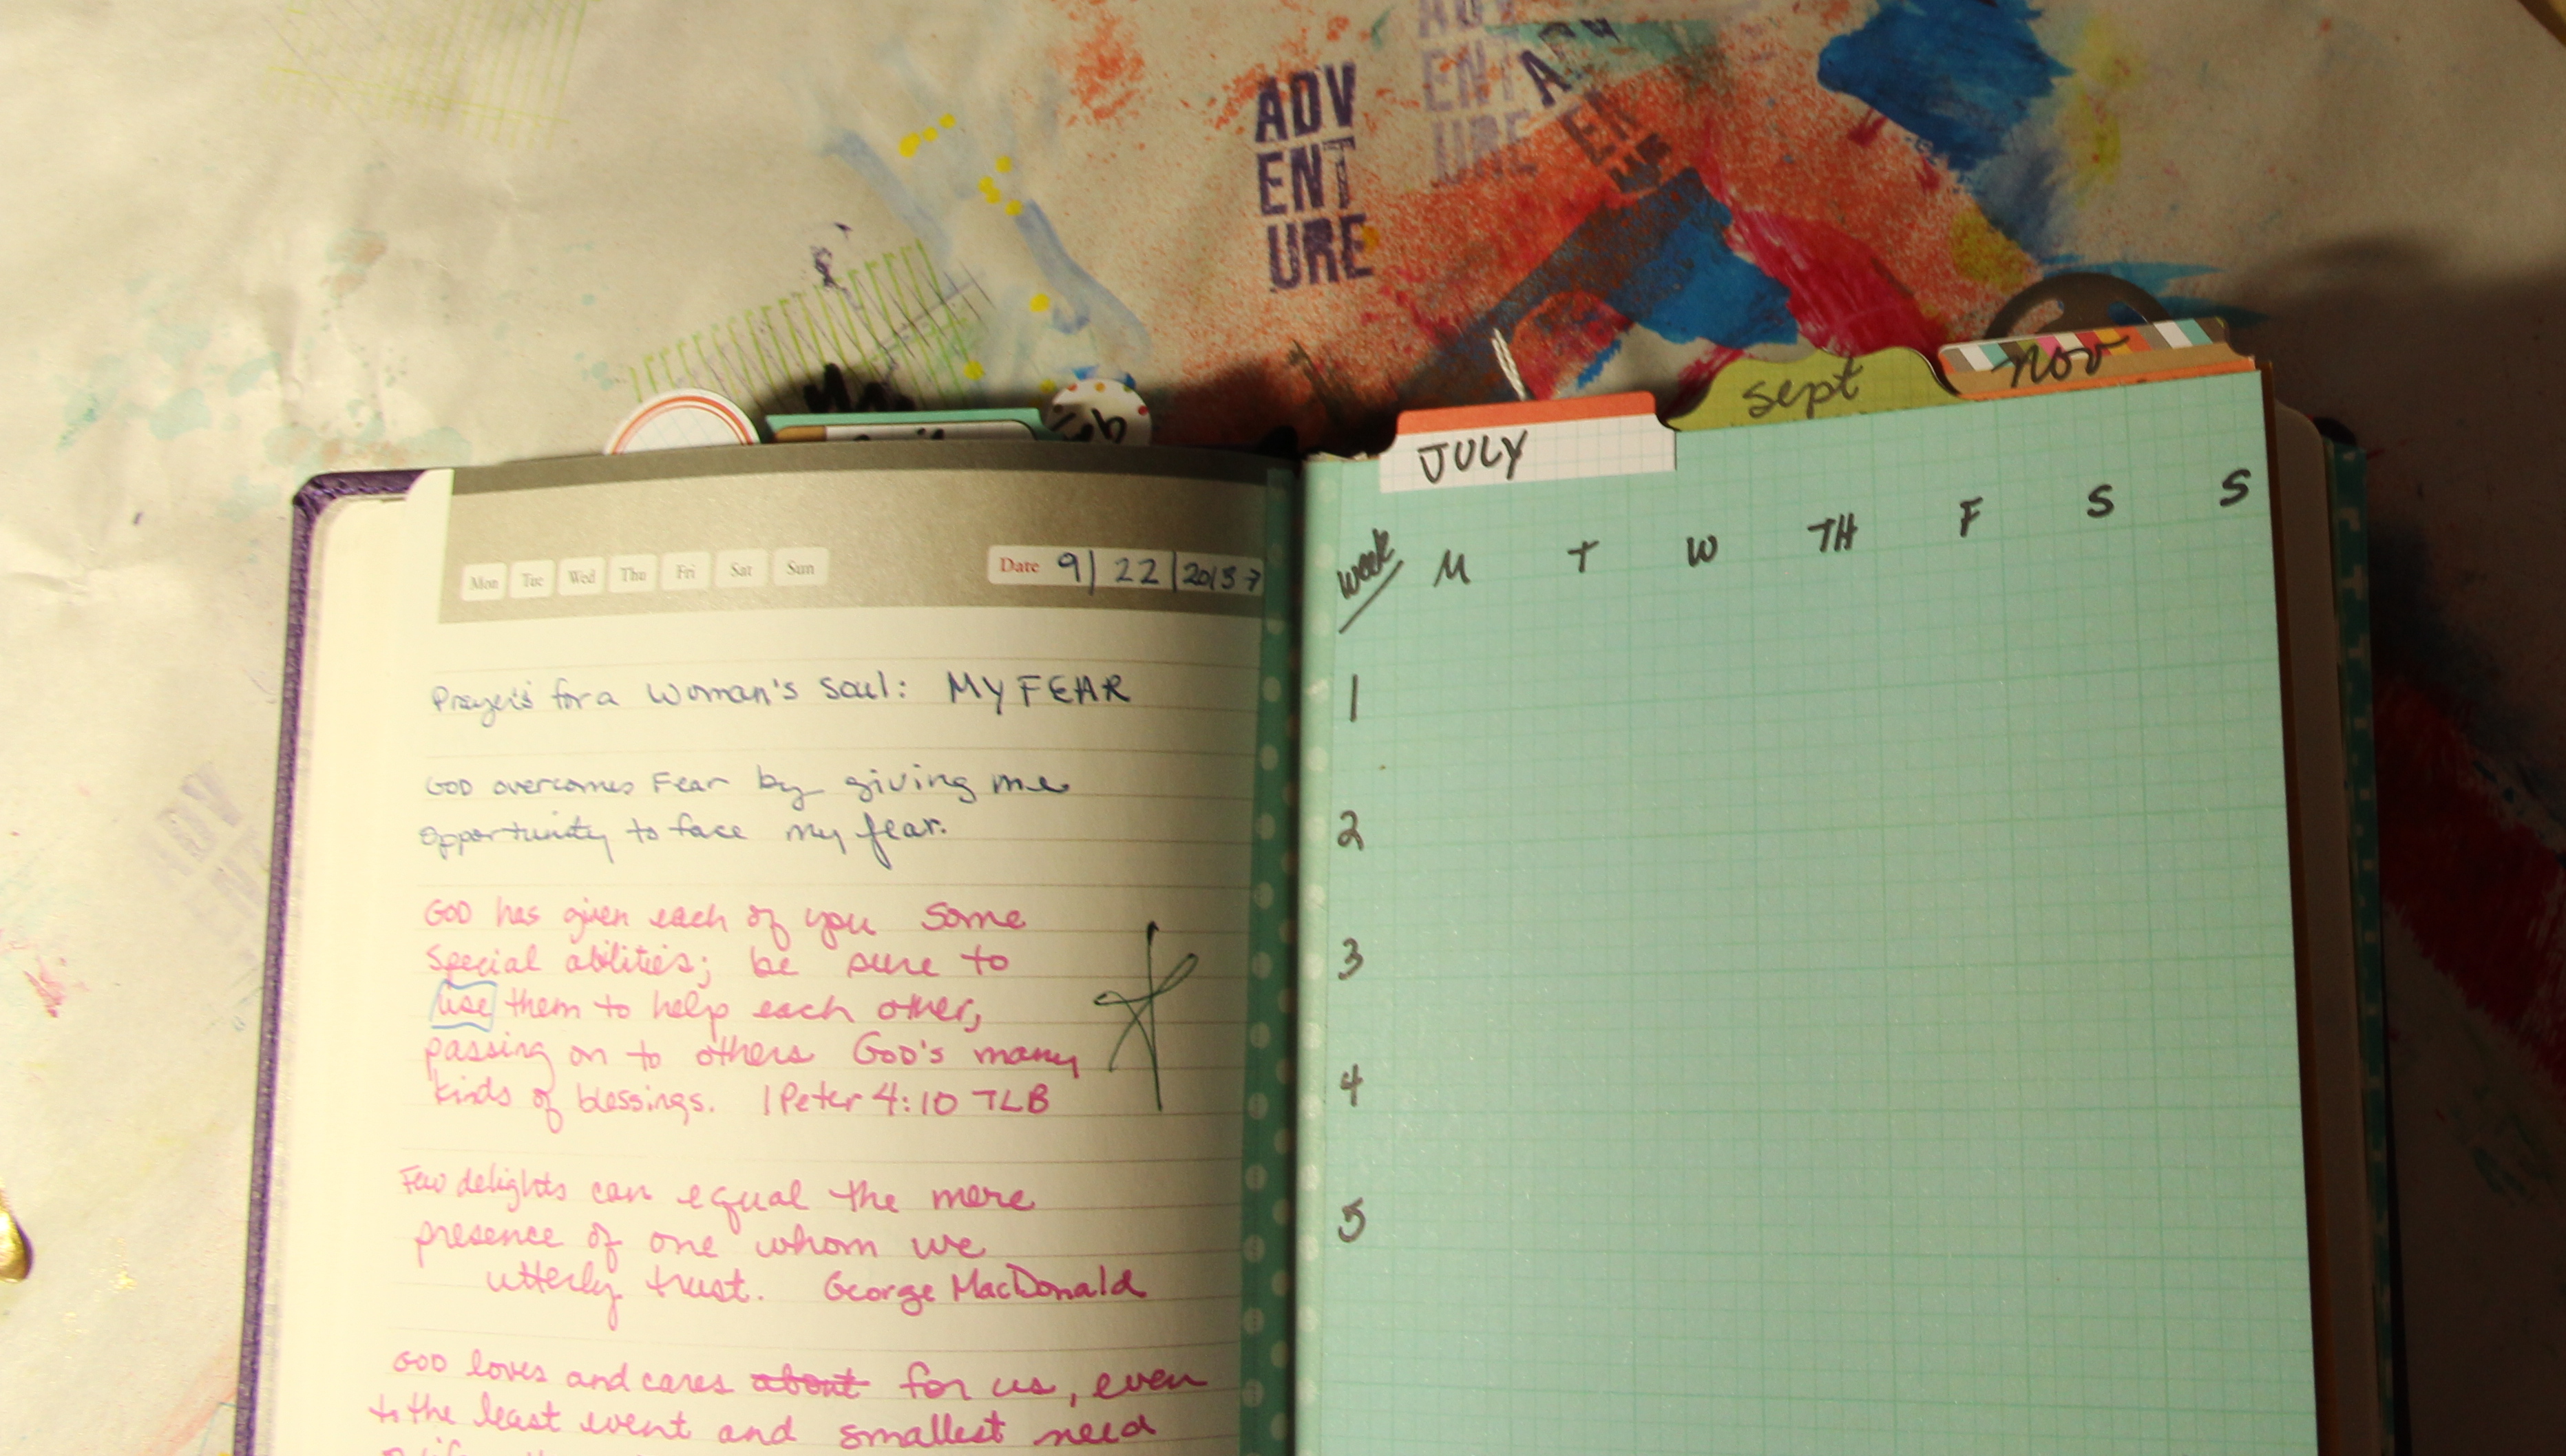 ADV
ENT
URE
ADV
ENT
URE
ADV
ENT
Feb
JULY
sept
nov
Mon Tue Wed Thu Fri Sat Sun
Date 9/22/2013
Prayers for a Woman's Soul: MY FEAR
GOD overcomes Fear by giving me
opportunity to face my fear.
GOD has given each of you some
special abilities; be sure to
use them to help each other,
passing on to others God's many
kinds of blessings. 1 Peter 4:10 TLB
Few delights can equal the mere
presence of one whom we
utterly trust. George MacDonald
GOD loves and cares about for us, even
to the least event and smallest need
week M T W TH F S S
1
2
3
4
5